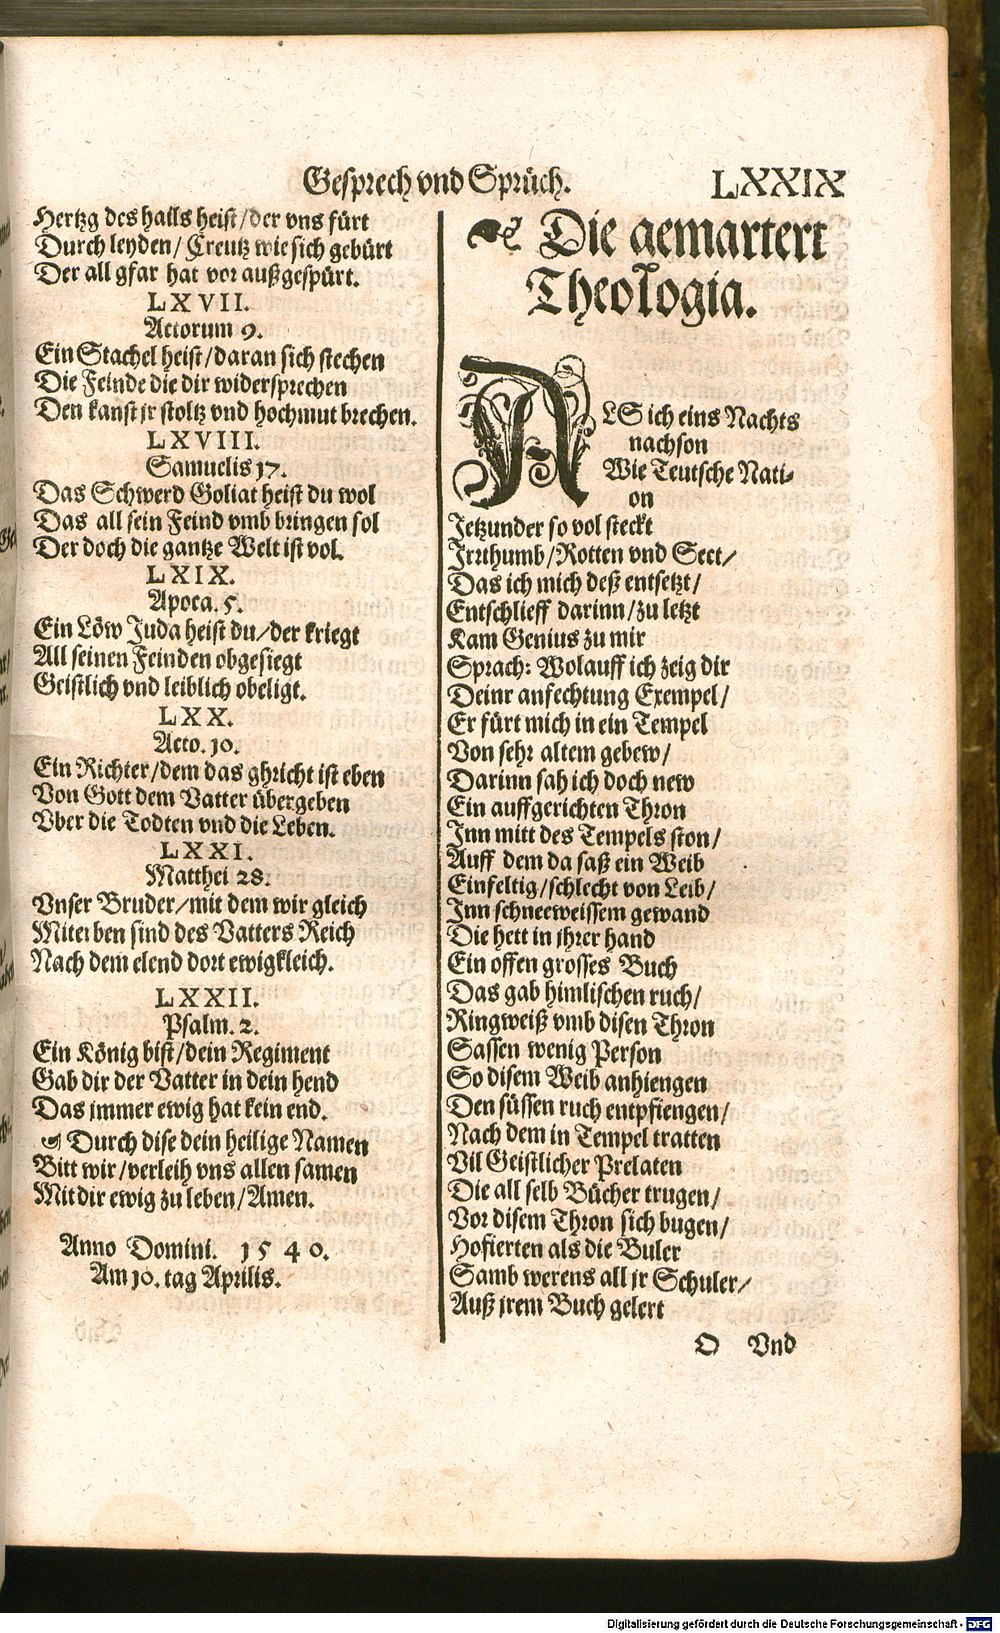 Gesprech vnd Sprüch. LXXIX
Hertzg des halls heist/der vns fürt
Durch leyden/ Creutz wie sich gebürt
Der all gfar hat vor außgespürt.
LXVII.
Actorum 9.
Ein Stachel heist/daran sich stechen
Die Feinde die dir widersprechen
Den kanst jr stoltz vnd hochmut brechen.
LXVIII.
Samuelis 17.
Das Schwerd Goliat heist du wol
Das all sein Feind vmb bringen sol
Der doch die gantze Welt ist vol.
LXIX.
Apoca. 5.
Ein Löw Juda heist du/der kriegt
All seinen Feinden obgesiegt
Geistlich vnd leiblich obeligt.
LXX.
Acto. 10.
Ein Richter/dem das ghricht ist eben
Von Gott dem Vatter übergeben
Vber die Todten vnd die Leben.
LXXI.
Matthei 28.
Vnser Bruder/mit dem wir gleich
Miterben sind des Vatters Reich
Nach dem elend dort ewigkleich.
LXXII.
Psalm. 2.
Ein König bist/dein Regiment
Gab dir der Vatter in dein hend
Das jmmer ewig hat kein end.
Durch dise dein heilige Namen
Bitt wir/verleih vns allen samen
Mit dir ewig zu leben/Amen.
Anno Domini. 1540.
Am 10. tag Aprilis.
Die gemartert
Theologia.
ALS ich eins Nachts
nachson
Wie Teutsche Nati-
on
Jetzunder so vol steckt
Jrrthumb/Rotten vnd Sect/
Das ich mich deß entsetzt/
Entschlieff darinn/zu letzt
Kam Genius zu mir
Sprach: Wolauff ich zeig dir
Deinr anfechtung Exempel/
Er fürt mich in ein Tempel
Von sehr altem gebew/
Darinn sah ich doch new
Ein auffgerichten Thron
Jnn mitt des Tempels ston/
Auff dem da saß ein Weib
Einfeltig/schlecht von Leib/
Jnn schneeweissem gewand
Die hett in jhrer hand
Ein offen grosses Buch
Das gab himlischen ruch/
Ringweiß vmb disen Thron
Sassen wenig Person
So disem Weib anhiengen
Den süssen ruch entpfiengen/
Nach dem in Tempel tratten
Vil Geistlicher Prelaten
Die all selb Bücher trugen/
Vor disem Thron sich bugen/
Hofierten als die Buler
Samb werens all jr Schuler/
Auß jrem Buch gelert
O Vnd
Digitalisierung gefördert durch die Deutsche Forschungsgemeinschaft - DFG